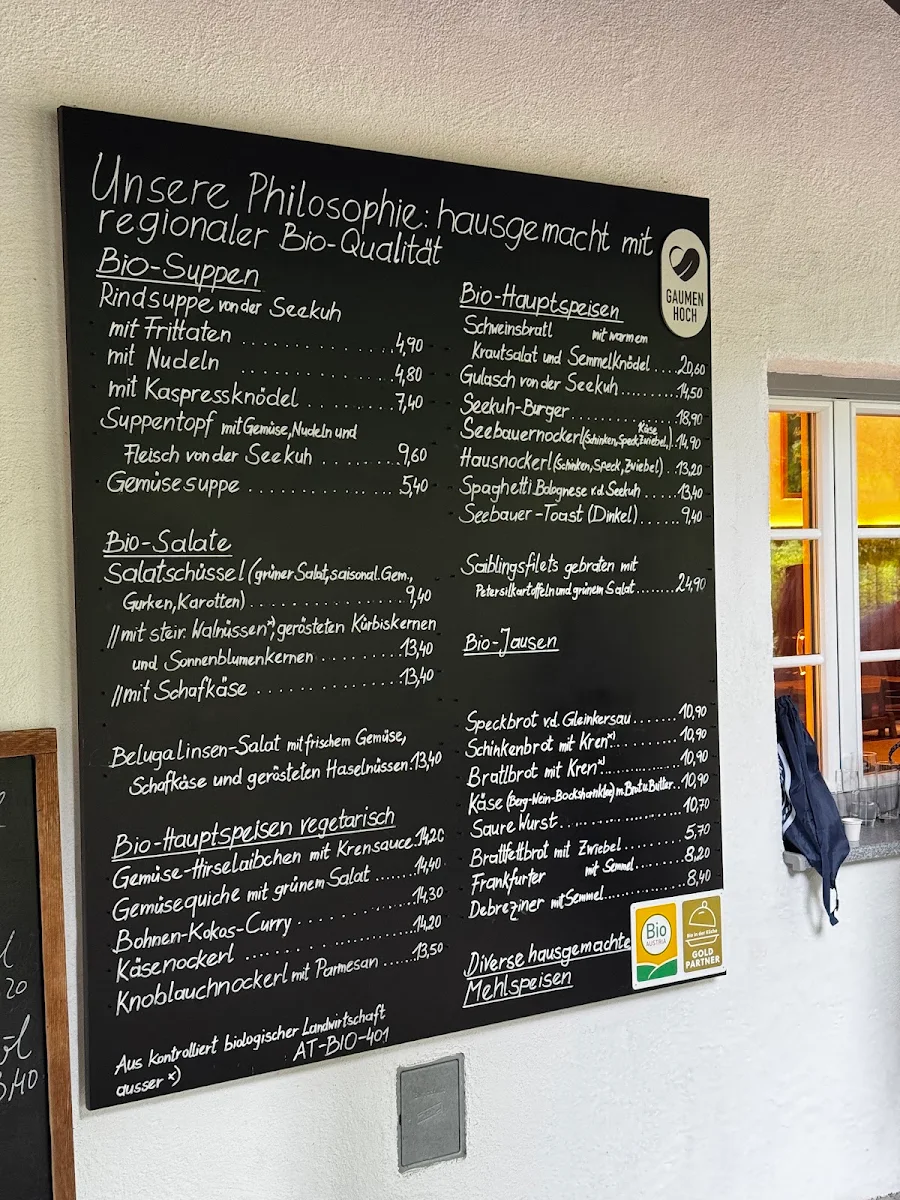 Unsere Philosophie: hausgemacht mit
regionaler Bio-Qualität
GAUMEN
HOCH
Bio-Suppen
Rindsuppe von der Seekuh
mit Frittaten ..................... 4,90
mit Nudeln ..................... 4,80
mit Kaspressknödel ............ 7,40
Suppentopf mit Gemüse, Nudeln und
Fleisch von der Seekuh ........ 9,60
Gemüsesuppe ................ 5,40
Bio-Salate
Salatschüssel (grüner Salat, saisonal. Gem.,
Gurken, Karotten) ................. 9,40
//mit steir. Walnüssen*), gerösteten Kürbiskernen
und Sonnenblumenkernen ........ 13,40
//mit Schafkäse ................. 13,40
Belugalinsen-Salat mit frischem Gemüse,
Schafkäse und gerösteten Haselnüssen. 13,40
Bio-Hauptspeisen vegetarisch
Gemüse-Hirselaibchen mit Krensauce. 14,20
Gemüsequiche mit grünem Salat ....... 14,40
Bohnen-Kokos-Curry ............... 14,30
Käsenockerl ..................... 14,20
Knoblauchnockerl mit Parmesan ...... 13,50
Aus kontrolliert biologischer Landwirtschaft
AT-BIO-401
ausser *)
Bio-Hauptspeisen
Schweinsbratl mit warmem
Krautsalat und Semmelknödel .... 20,60
Gulasch von der Seekuh ........ 14,50
Seekuh-Burger ............... 18,90
Seebauernockerl (Schinken, Speck, Zwiebel, Käse). 14,90
Hausnockerl (Schinken, Speck, Zwiebel) .. 13,20
Spaghetti Bolognese v.d. Seekuh ..... 13,40
Seebauer-Toast (Dinkel) ...... 9,40
Saiblingsfilets gebraten mit
Petersilkartoffeln und grünem Salat ....... 24,90
Bio-Jausen
Speckbrot v.d. Gleinkersau ....... 10,90
Schinkenbrot mit Kren*) ........ 10,90
Bratlbrot mit Kren*) .......... 10,90
Käse (Berg-Wein-Bockshornklee) m. Brot u. Butter.. 10,90
Saure Wurst .............. 10,70
Bratlfettbrot mit Zwiebel ........ 5,70
Frankfurter mit Semmel ........ 8,20
Debreziner mit Semmel ........... 8,40
Diverse hausgemachte
Mehlspeisen
Bio
AUSTRIA
Bio in der Küche
GOLD
PARTNER
20
3,40